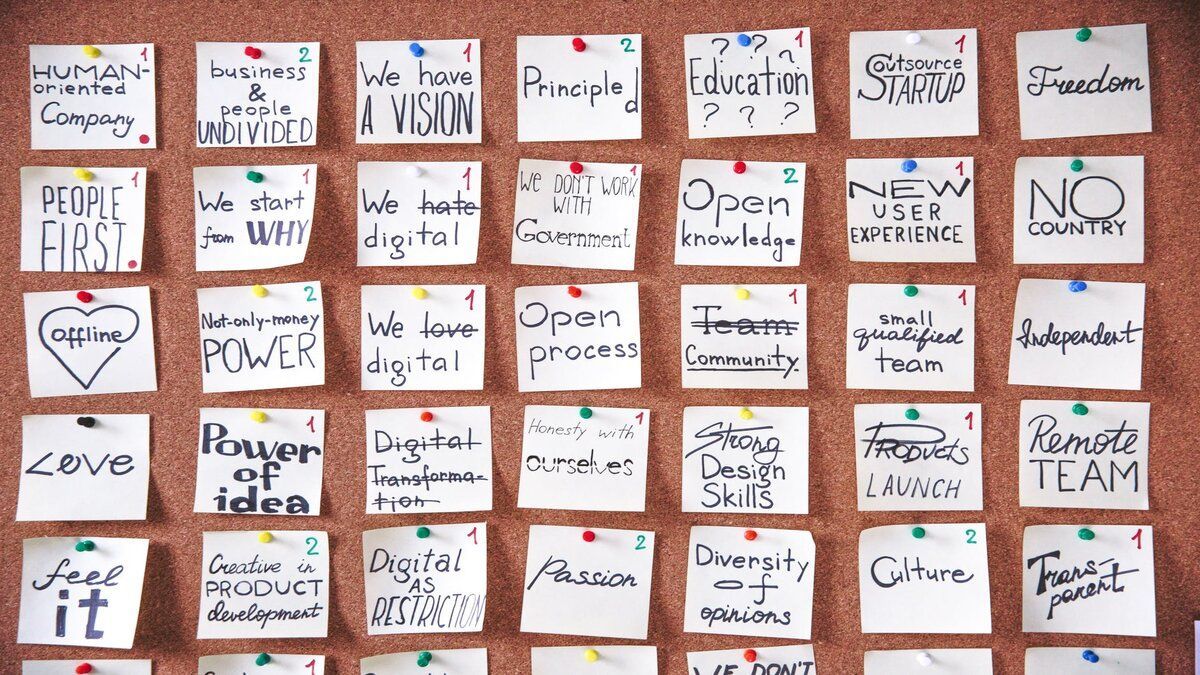 1
HUMAN-
oriented
Company
2
business
&
people
UNDIVIDED
1
We have
A VISION
2
Principle
d
1
? ? ?
Education
? ? ?
1
Outsource
STARTUP
Freedom
1
PEOPLE
FIRST
1
We start
from WHY
1
We hate
digital
1
WE DON'T WORK
WITH
Government
2
Open
knowledge
1
NEW
USER
EXPERIENCE
NO
COUNTRY
offline
2
Not-only-money
POWER
1
We love
digital
Open
process
1
Team
Community
1
small
qualified
team
Independent
Love
1
Power
of
idea
Digital
Transforma-
tion
1
Honesty with
ourselves
Strong
Design
Skills
1
PRODUCTS
LAUNCH
Remote
TEAM
feel
it
2
Creative in
PRODUCT
development
1
Digital
AS
RESTRICTION
2
Passion
Diversity
of
opinions
2
Culture
1
Trans-
parent
1
WE DON'T